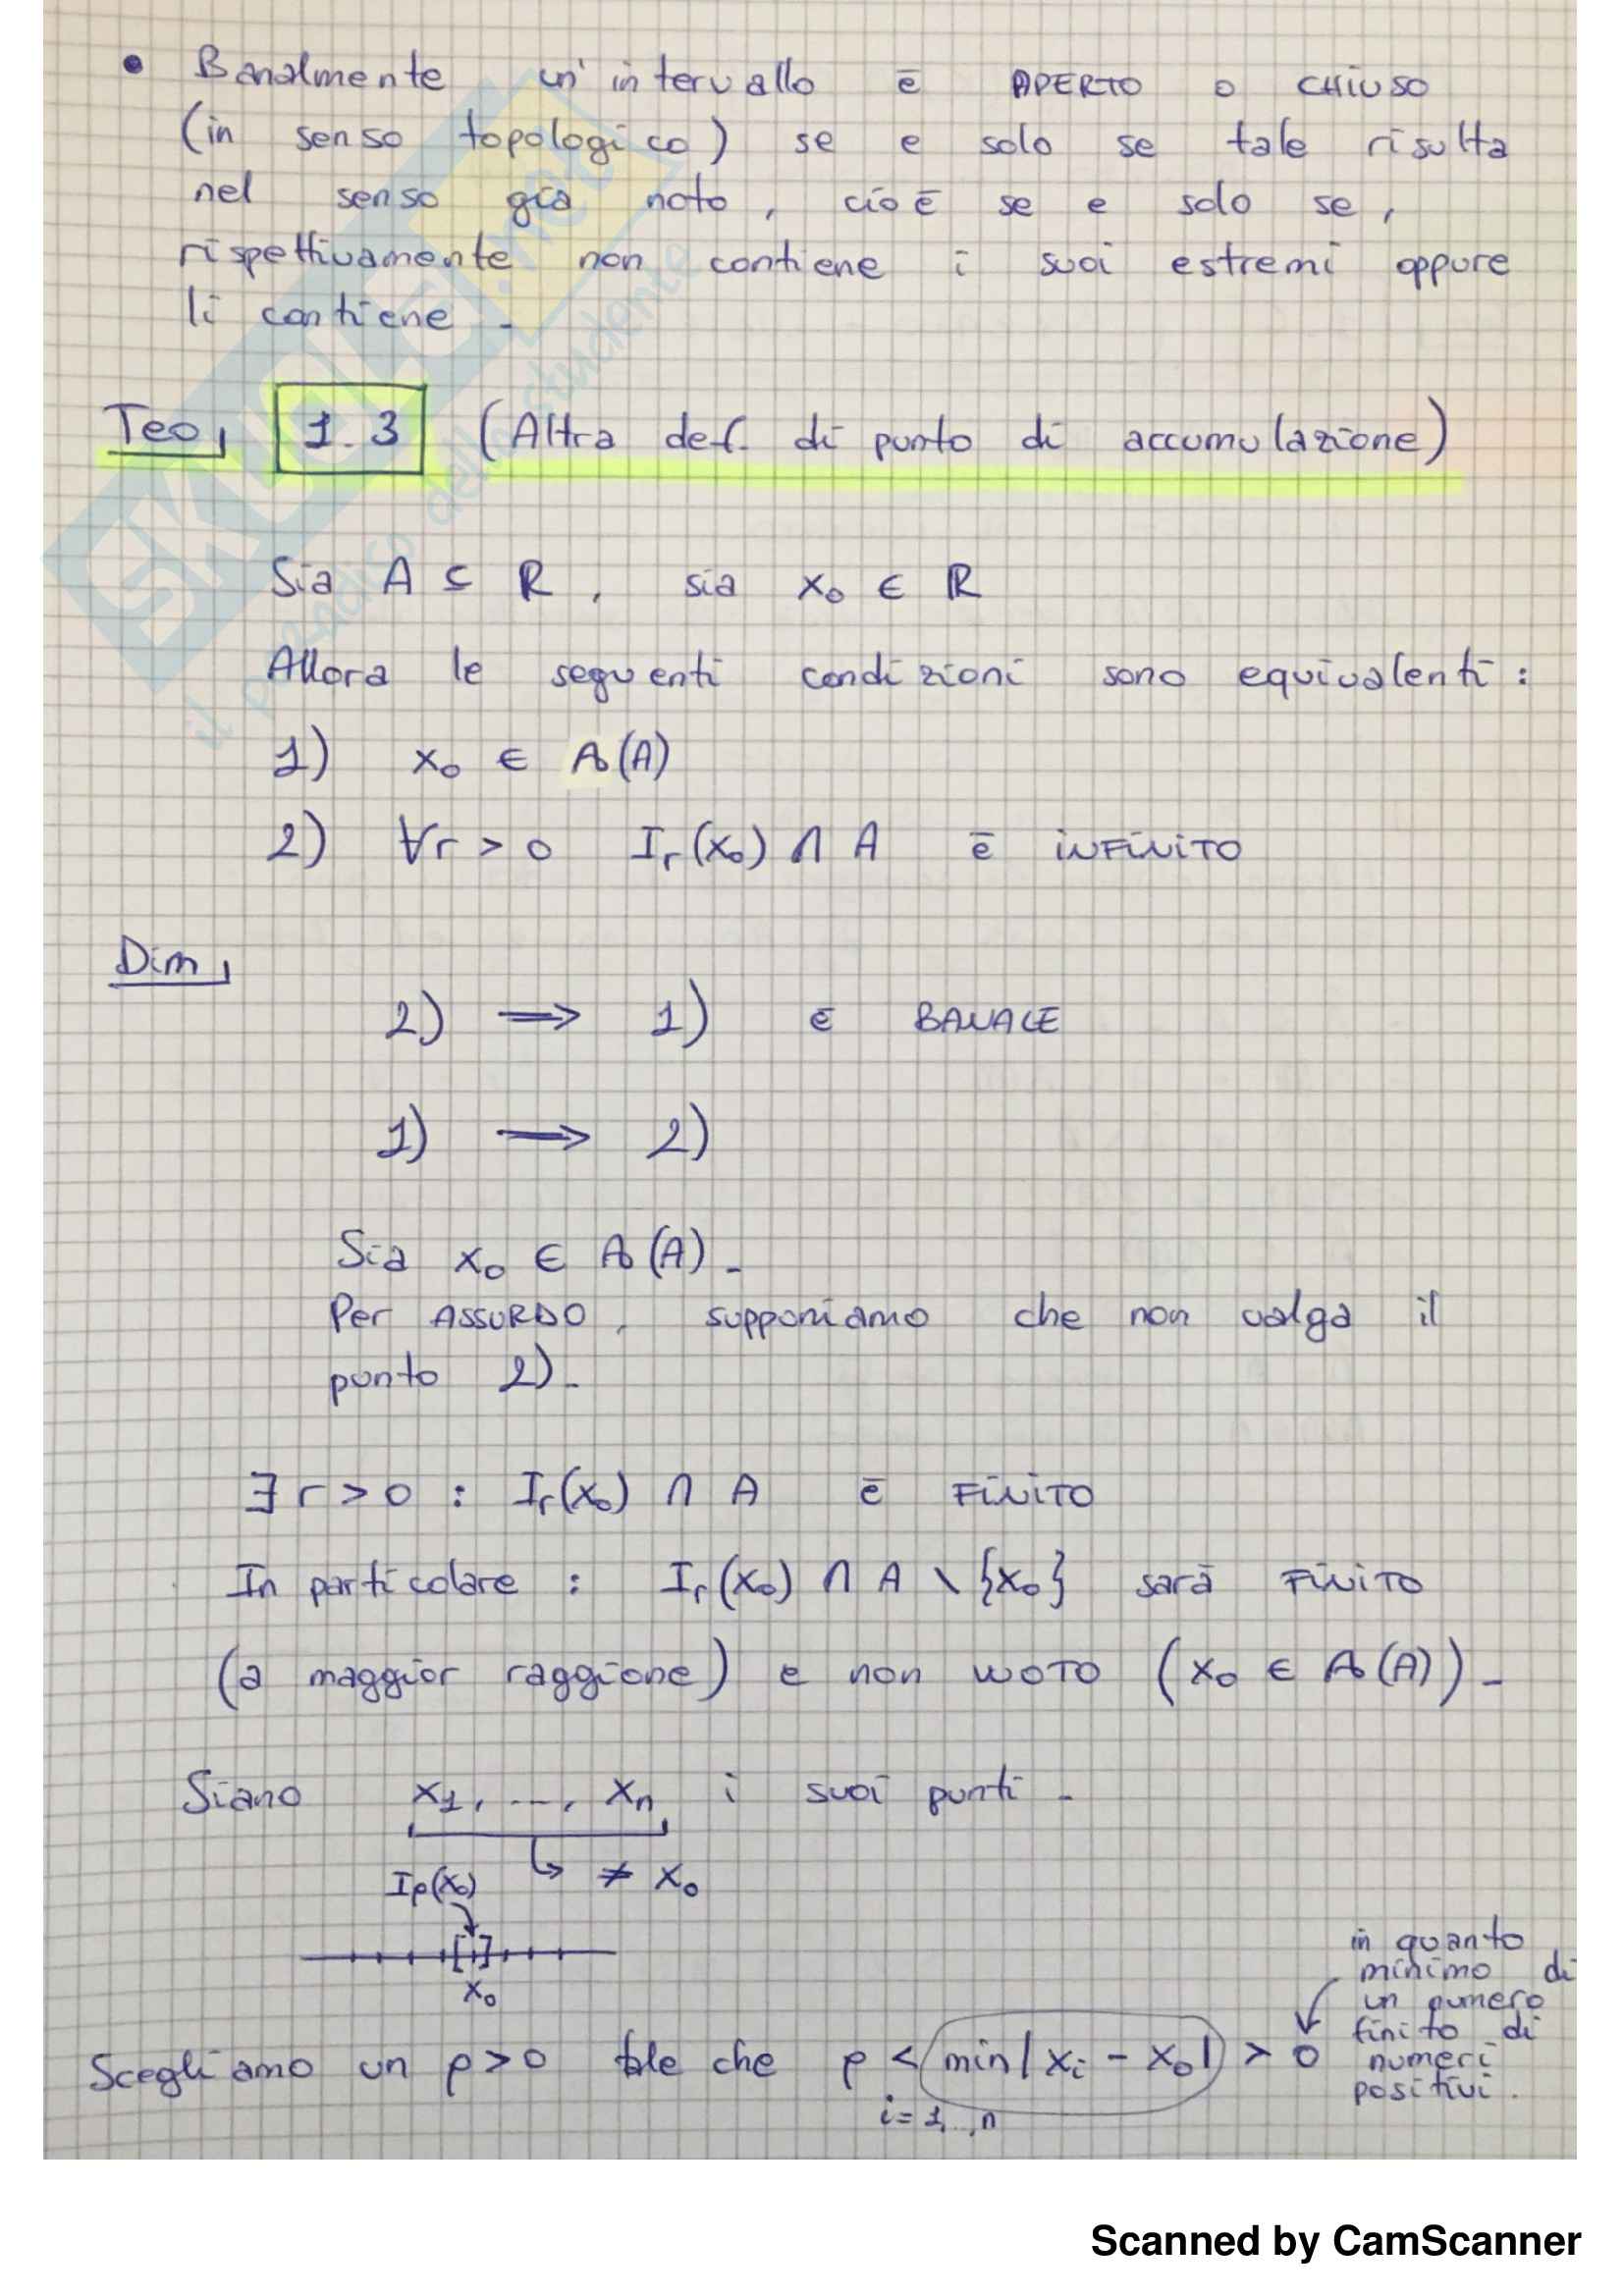 • Banalmente un'intervallo è APERTO o CHIUSO
(in senso topologico) se e solo se tale risulta
nel senso già noto, cioè se e solo se,
rispettivamente non contiene i suoi estremi oppure
li contiene -
Teo, 1.3 (Altra def. di punto di accumulazione)
Sia A ⊆ R, sia x₀ ∈ R
Allora le seguenti condizioni sono equivalenti:
1) x₀ ∈ Ao(A)
2) ∀r > 0 Iᵣ(x₀) ∩ A è INFINITO
Dim,
2) ⟹ 1) è BANALE
1) ⟹ 2)
Sia x₀ ∈ Ao(A) -
Per ASSURDO, supponiamo che non valga il
punto 2) -
∃ r > 0 : Iᵣ(x₀) ∩ A è FINITO
In particolare : Iᵣ(x₀) ∩ A \ {x₀} sarà FINITO
(a maggior raggione) e non VUOTO (x₀ ∈ Ao(A)) -
Siano x₁, ..., xₙ i suoi punti -
↳ ≠ x₀
Iρ(x₀)
[ ]
x₀
in quanto
minimo di
un numero
finito di
numeri
positivi.
Scegliamo un ρ > 0 tale che ρ < min |xᵢ - x₀| > 0
i = 1, .., n
SKUOLA.net
il paradiso dello studente
Scanned by CamScanner